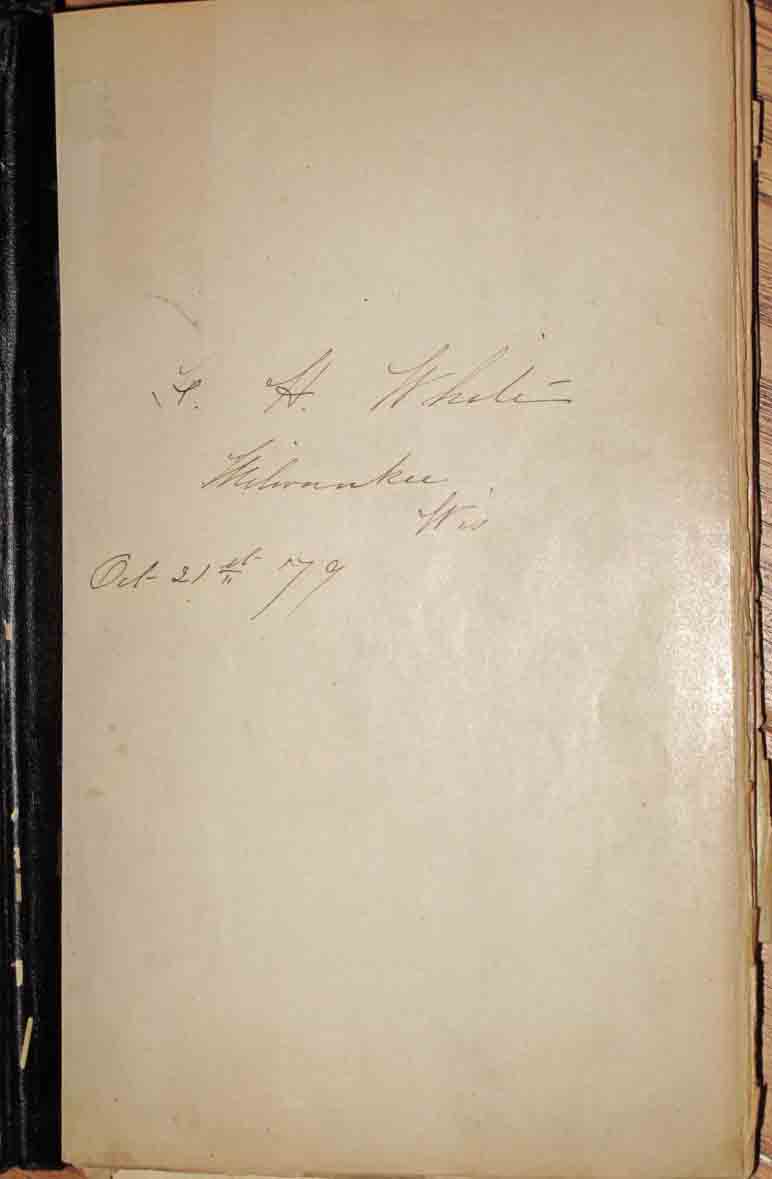 H. White
Milwaukee
Wis
Oct 21st '79